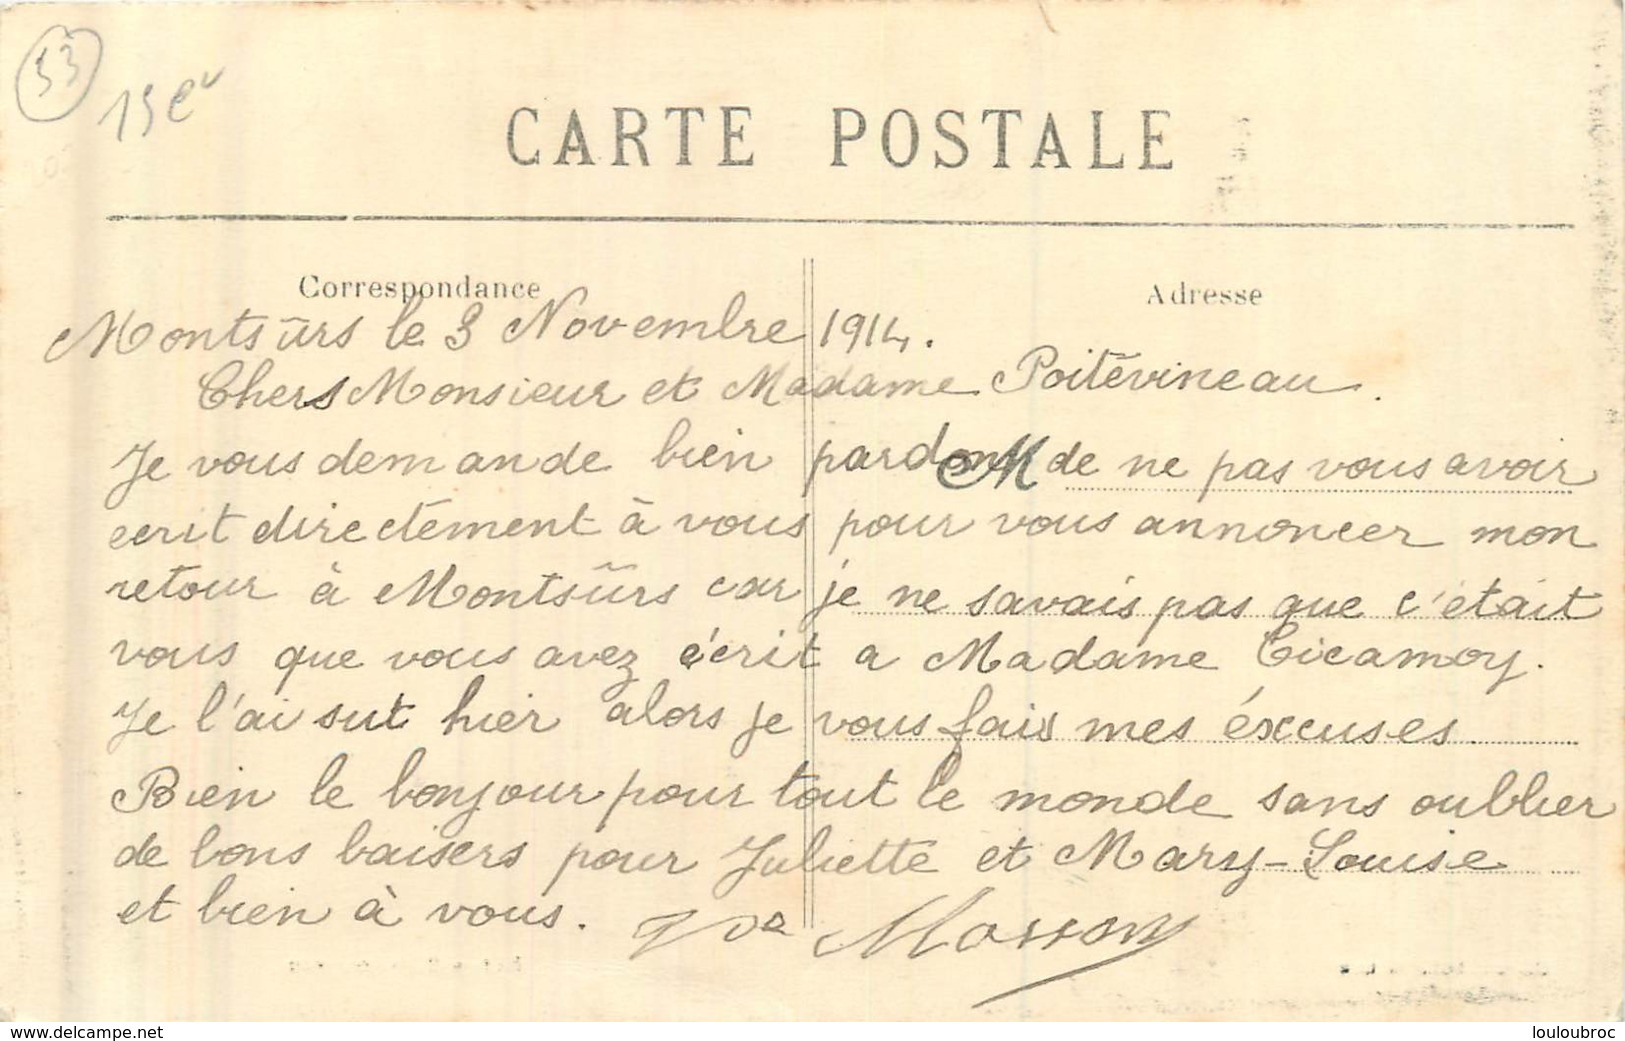 53
15e
CARTE POSTALE
Correspondance
Adresse
Montsûrs le 3 Novembre 1914.
Chers Monsieur et Madame Poitévineau.
Je vous demande bien pardon de ne pas vous avoir
ecrit directément à vous pour vous annoncer mon
retour à Montsûrs car je ne savais pas que c'était
vous que vous avez écrit a Madame Cicamoy.
Je l'ai sut hier alors je vous fais mes éxcuses
Bien le bonjour pour tout le monde sans oublier
de bons baisers pour Juliette et Mary-Louise
et bien à vous. Masson
www.delcampe.net
louloubroc